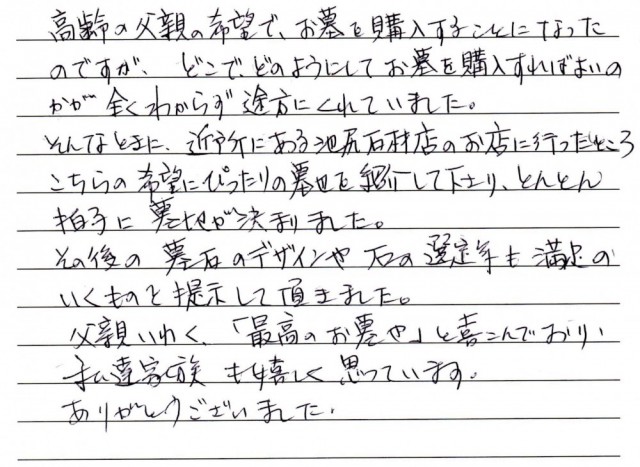 高齢の父親の希望で、お墓を購入することになった
のですが、どこで、どのようにしてお墓を購入すればよいの
かが全くわからず途方にくれていました。
そんなときに、近所にある池尻石材店のお店に行ったところ
こちらの希望にぴったりの墓地を紹介して下さり、とんとん
拍子に墓地が決まりました。
その後の墓石のデザインや石の選定等も満足の
いくものを提示して頂きました。
父親いわく、「最高のお墓や」と喜こんでおり、
私達家族も嬉しく思っています。
ありがとうございました。